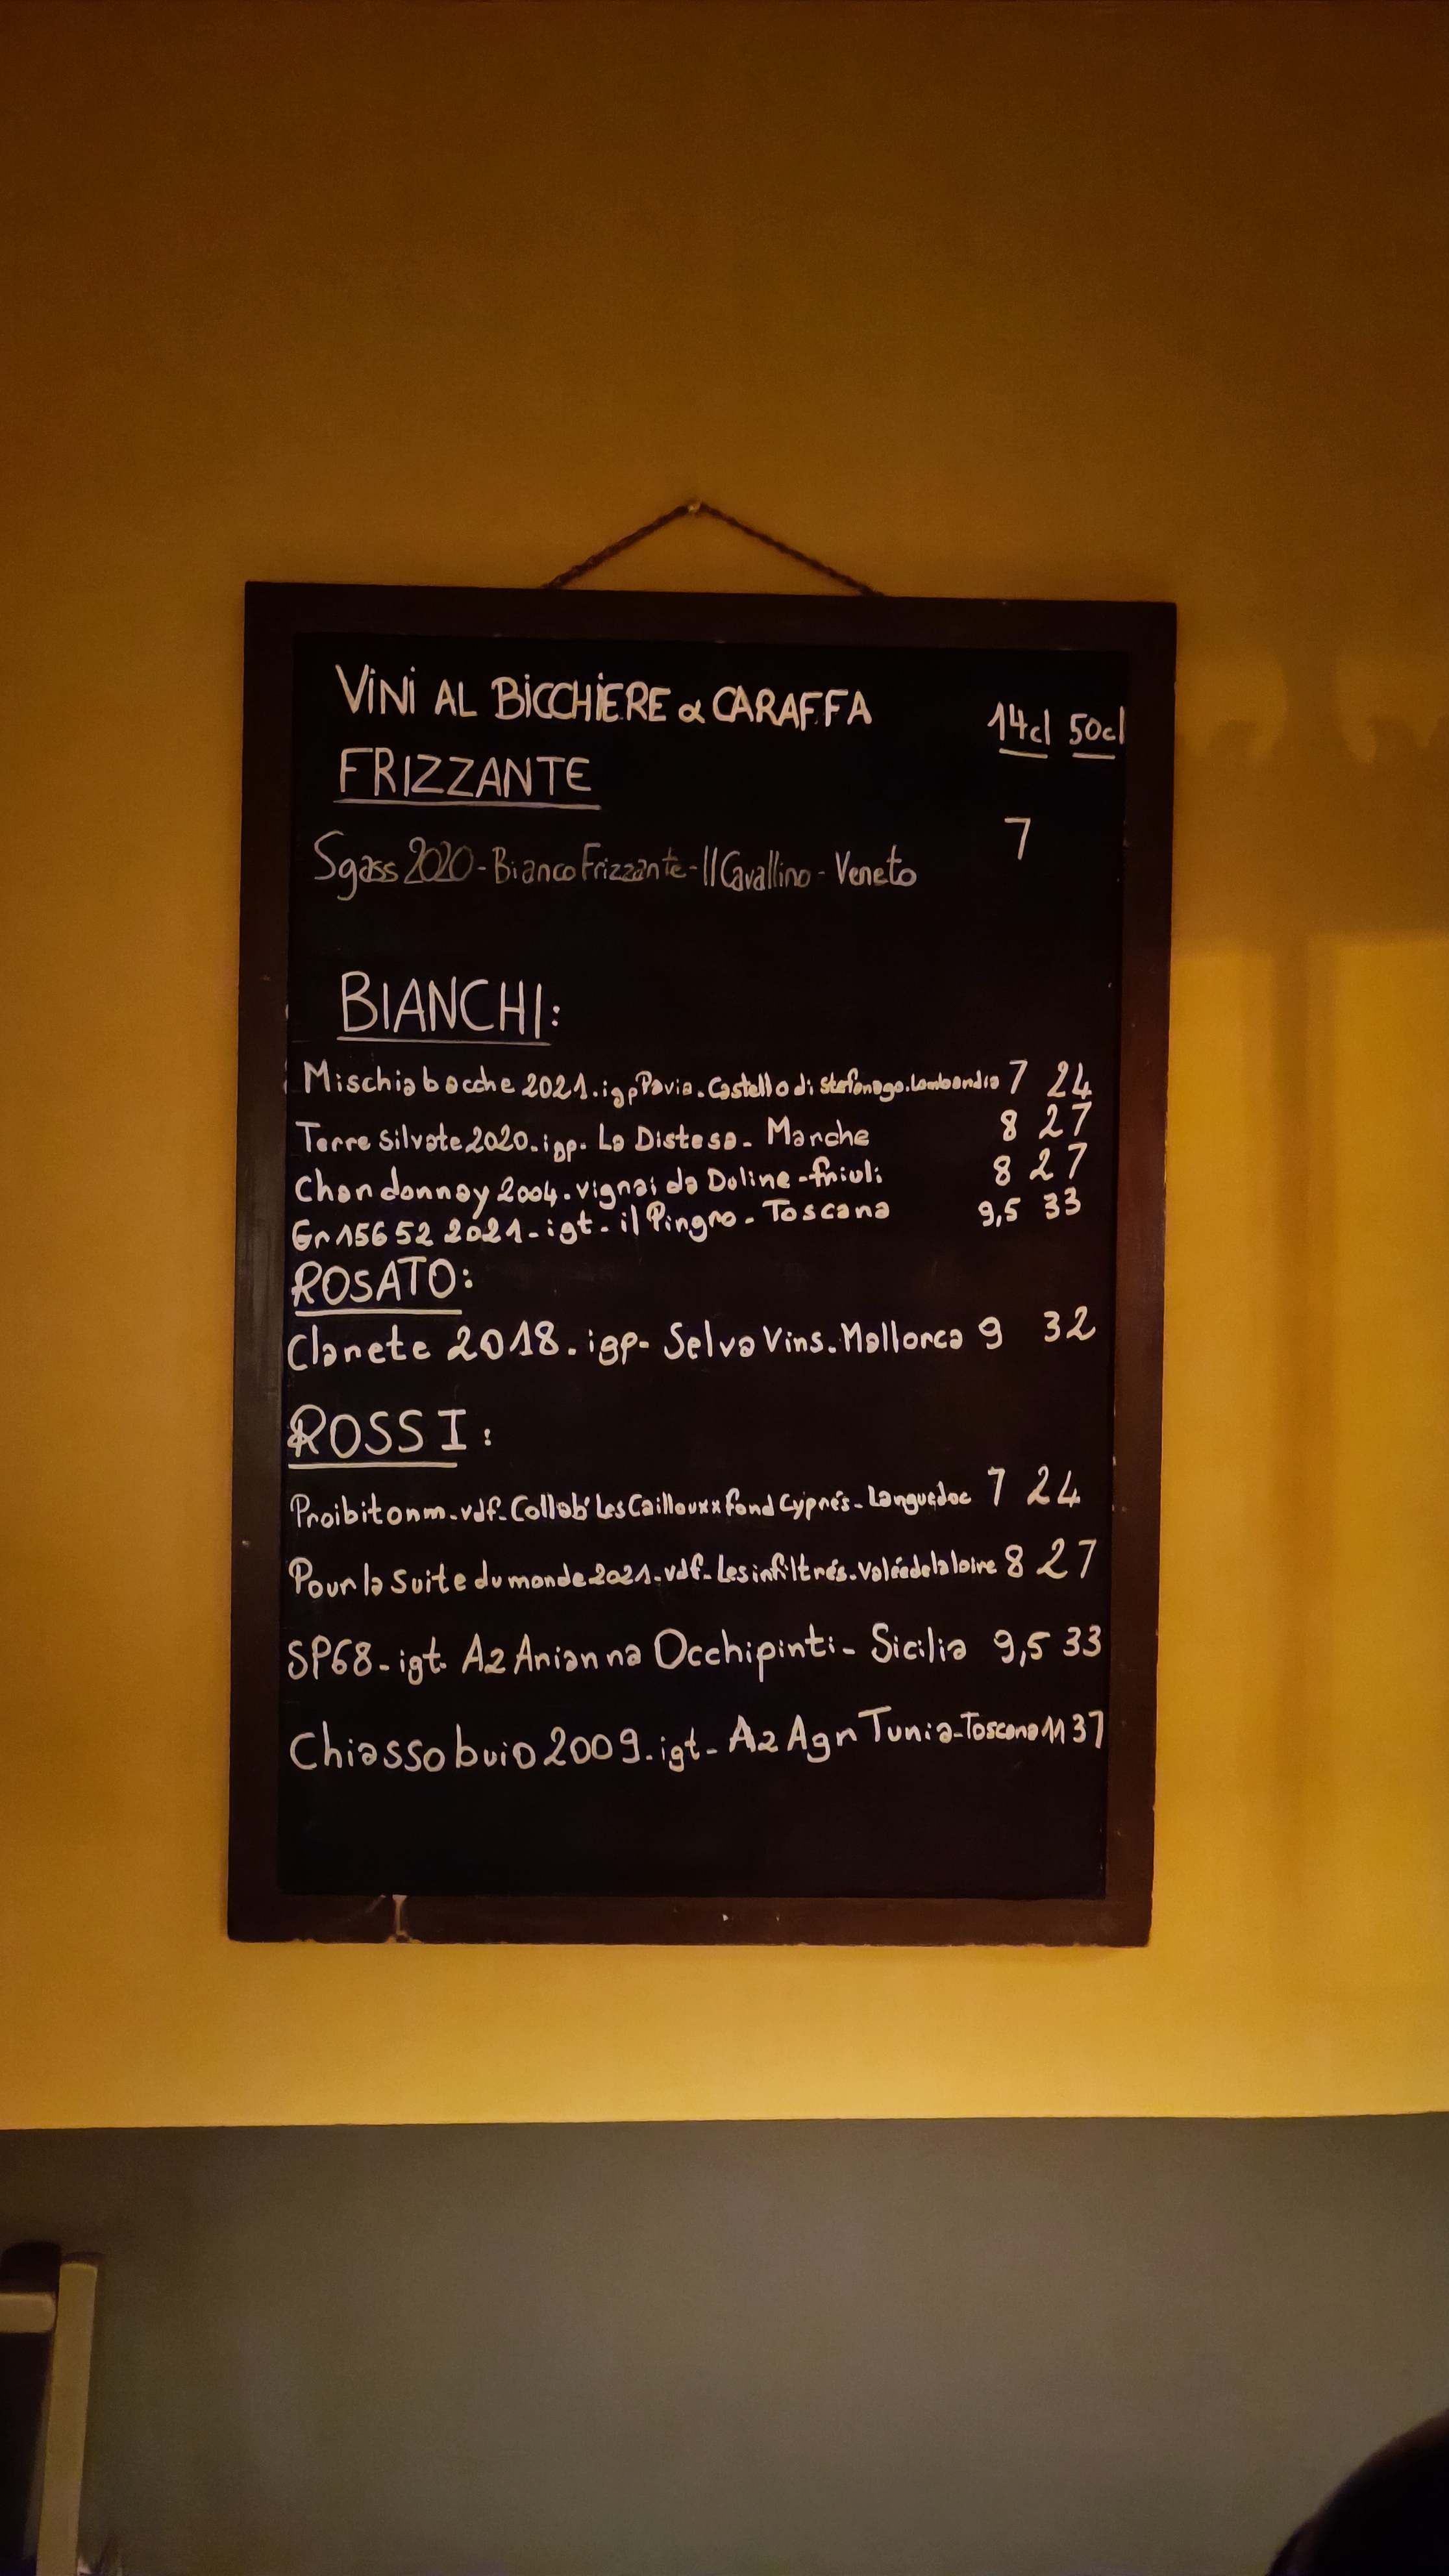 VINI AL BICCHIERE & CARAFFA 14cl 50cl
FRIZZANTE
Sgass 2020 - Bianco Frizzante - Il Cavallino - Veneto 7
BIANCHI:
Mischiabocche 2021. igp Pavia. Castello di Stefanago. Lombardia 7 24
Terre Silvate 2020. igp. La Distesa. Marche 8 27
Chardonnay 2004. vignai da Duline - friuli 8 27
Gr 156 52 2021 - igt - il Pingro. Toscana 9,5 33
ROSATO:
Clarete 2018. igp- Selva Vins. Mallorca 9 32
ROSSI:
Proibitonm - vdf - Collab' Les Caillouxx fond Cyprés - Languedoc 7 24
Pour la Suite du monde 2021. vdf - Les infiltrés. Valée de la loire 8 27
SP68 - igt. Az Arianna Occhipinti - Sicilia 9,5 33
Chiasso buio 2009. igt - Az Agr Tunia - Toscana 11 37